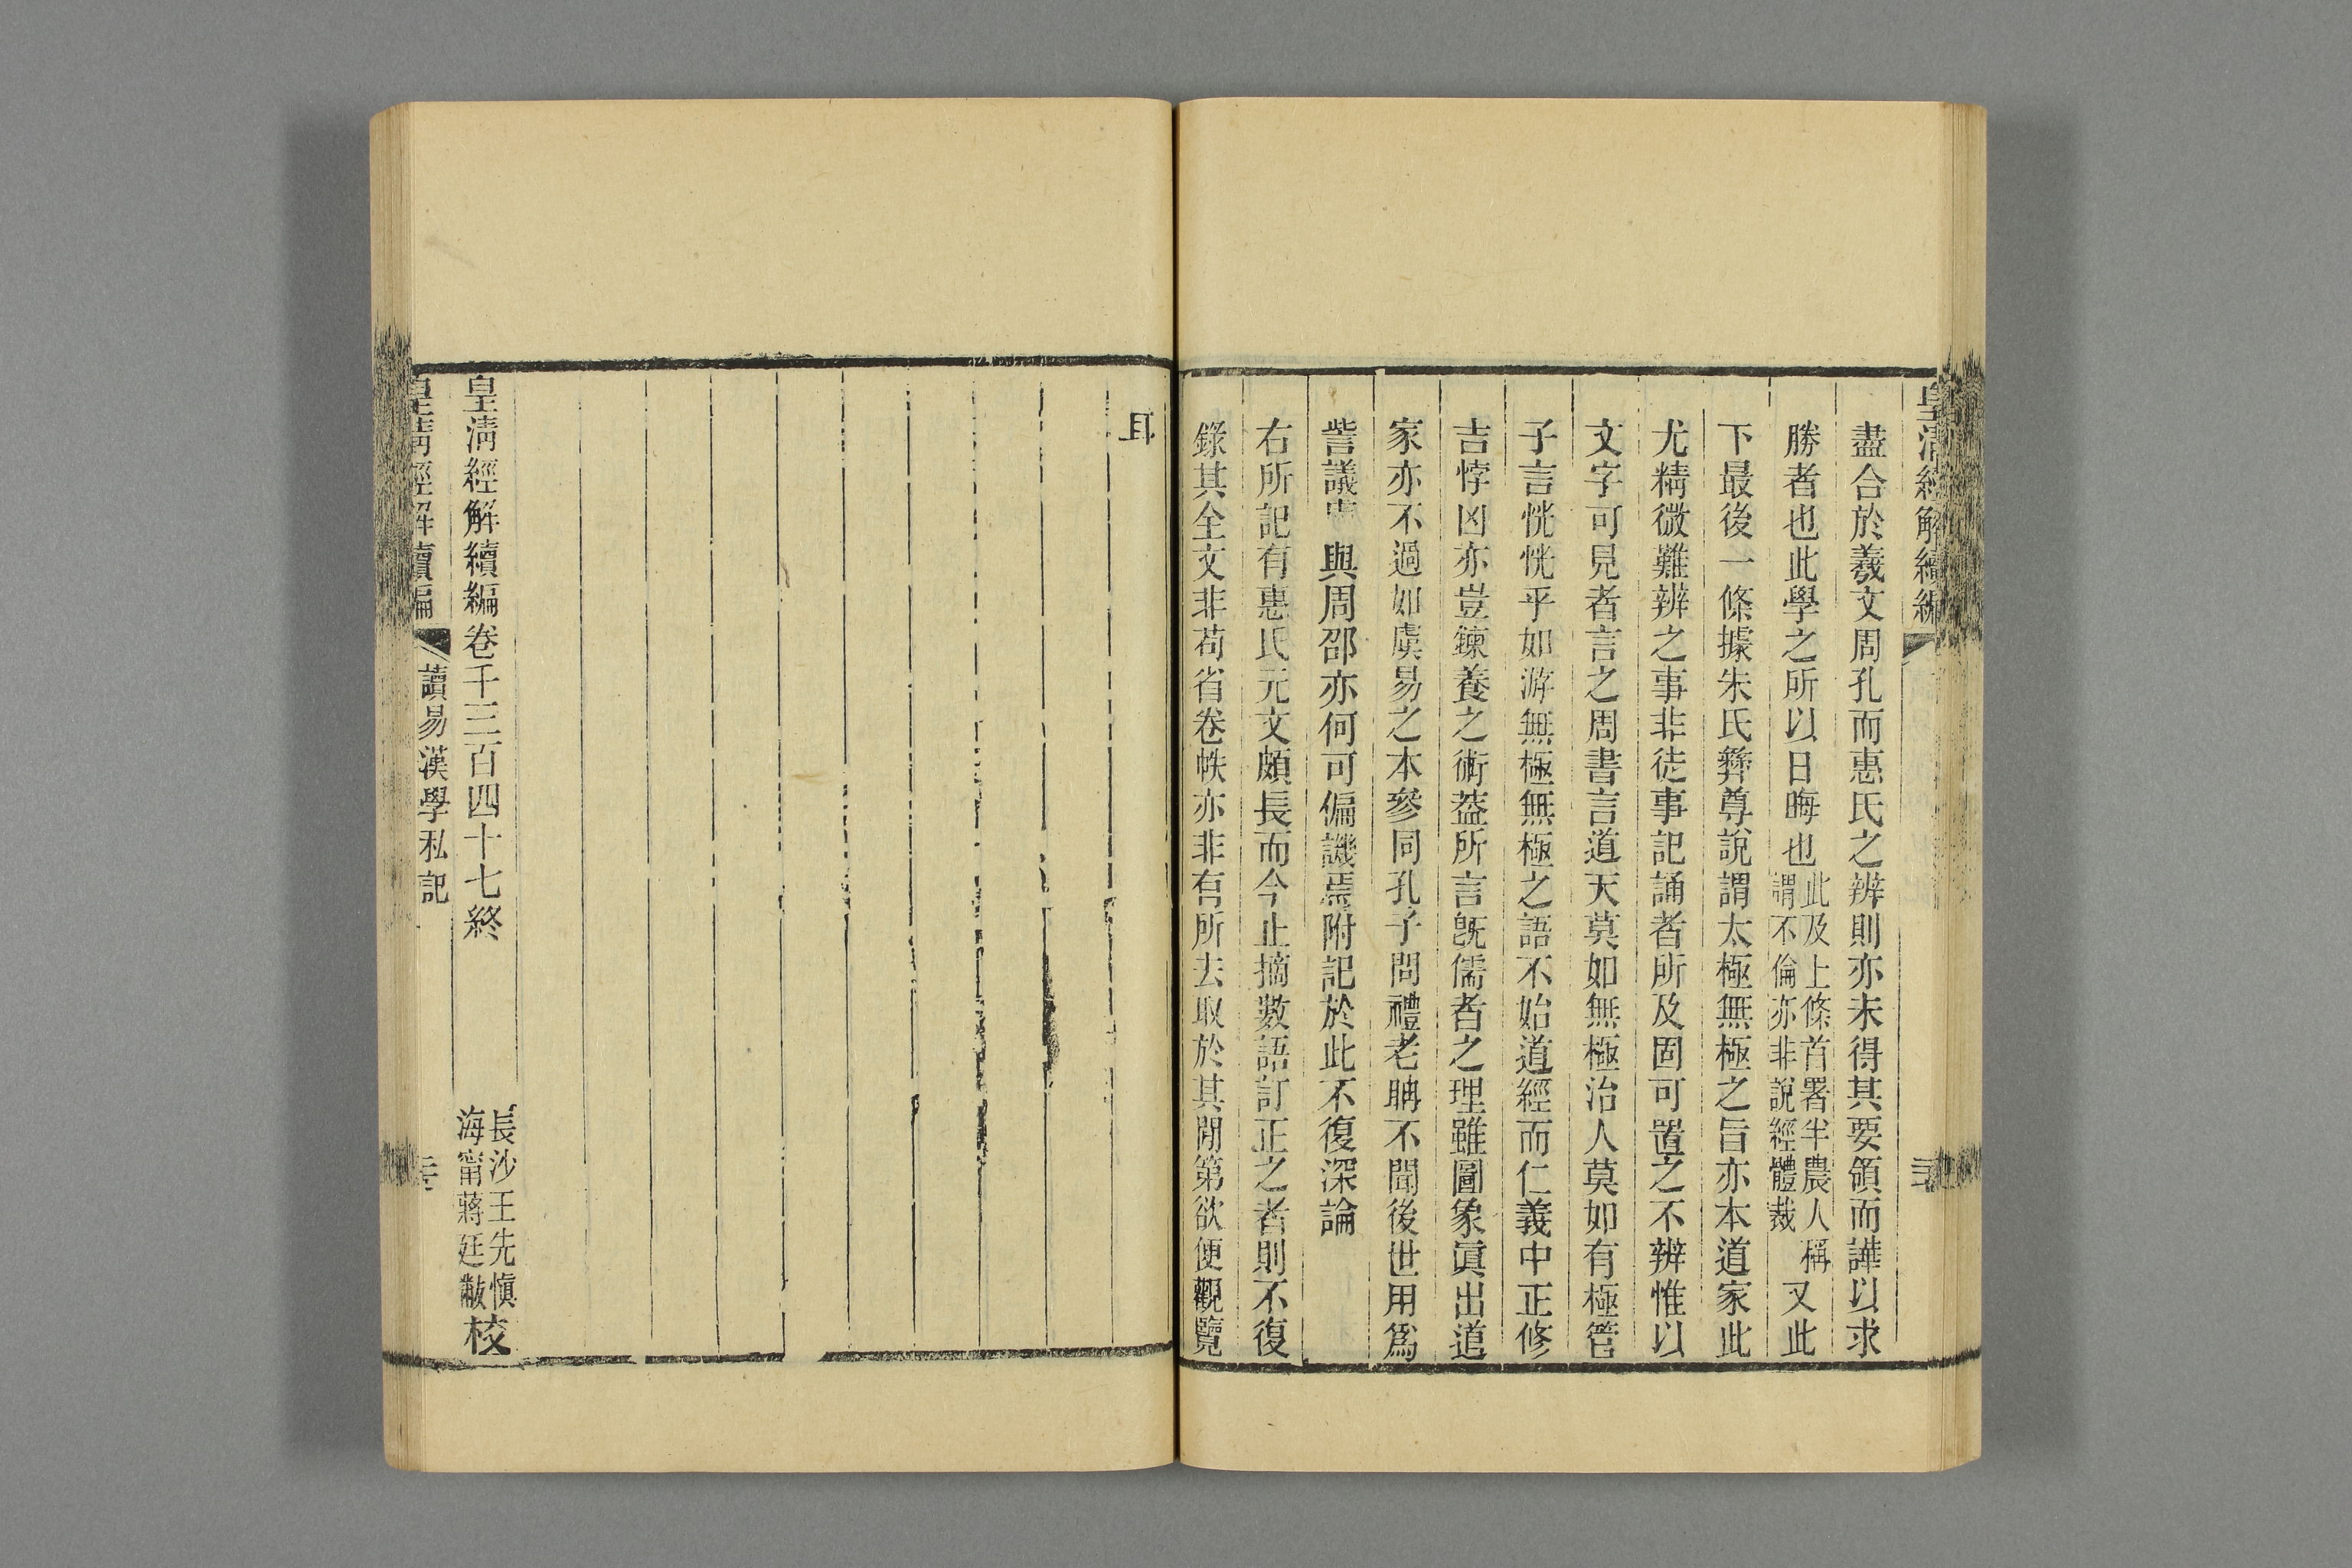 皇清經解續編
盡合於羲文周孔而惠氏之辨則亦未得其要領而譁以求
勝者也此學之所以日晦也此及上條首署半農人稱謂不倫亦非說經體裁又此
下最後一條據朱氏彝尊說謂太極無極之旨亦本道家此
尤精微難辨之事非徒事記誦者所及固可置之不辨惟以
文字可見者言之周書言道天莫如無極治人莫如有極管
子言恍恍乎如游無極無極之語不始道經而仁義中正修
吉悖凶亦豈鍊養之術葢所言旣儒者之理雖圖象眞出道
家亦不過如虞易之本參同孔子問禮老聃不聞後世用爲
訾議 與周邵亦何可偏譏焉附記於此不復深論
右所記有惠氏元文頗長而今止摘數語訂正之者則不復
錄其全文非苟省卷帙亦非有所去取於其閒第欲便觀覽
耳
皇淸經解續編卷千三百四十七終
長沙王先愼
海甯蔣廷黻校
皇淸經解續編
讀易漢學私記